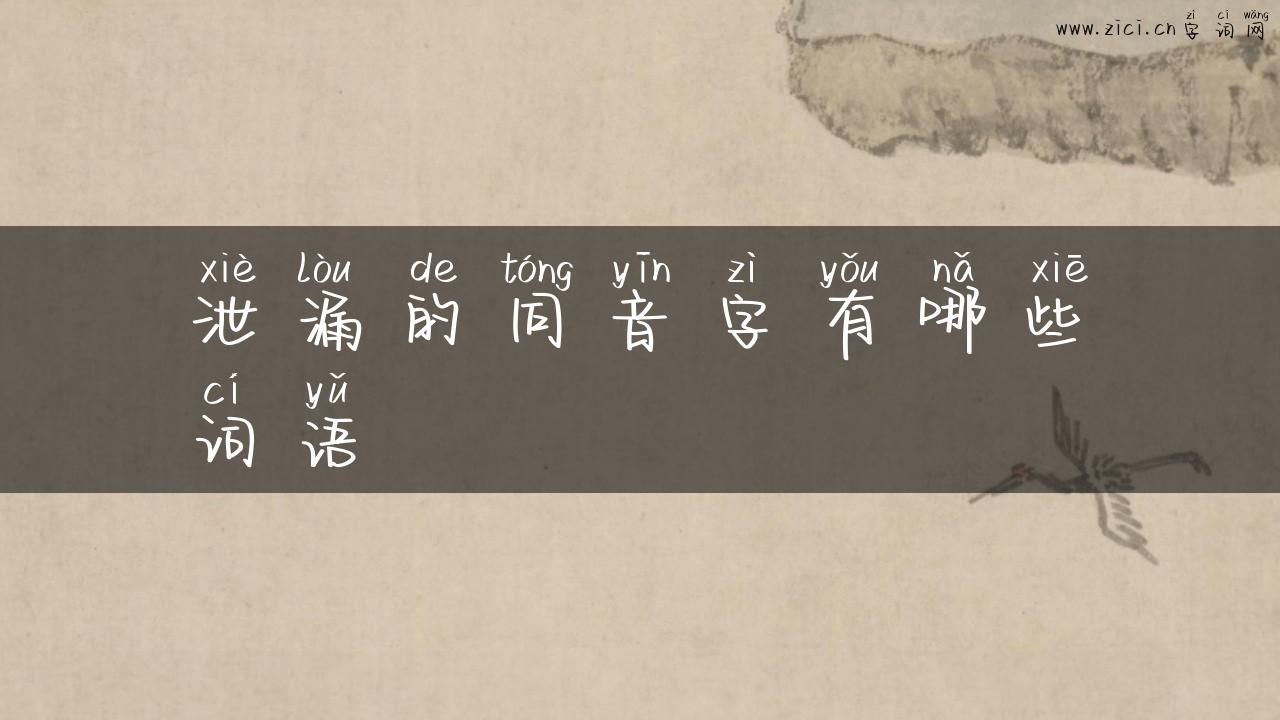 zì cí wǎng
www.zici.cn 字词网
xiè lòu de tóng yīn zì yǒu nǎ xiē
泄漏的同音字有哪些
cí yǔ
词语